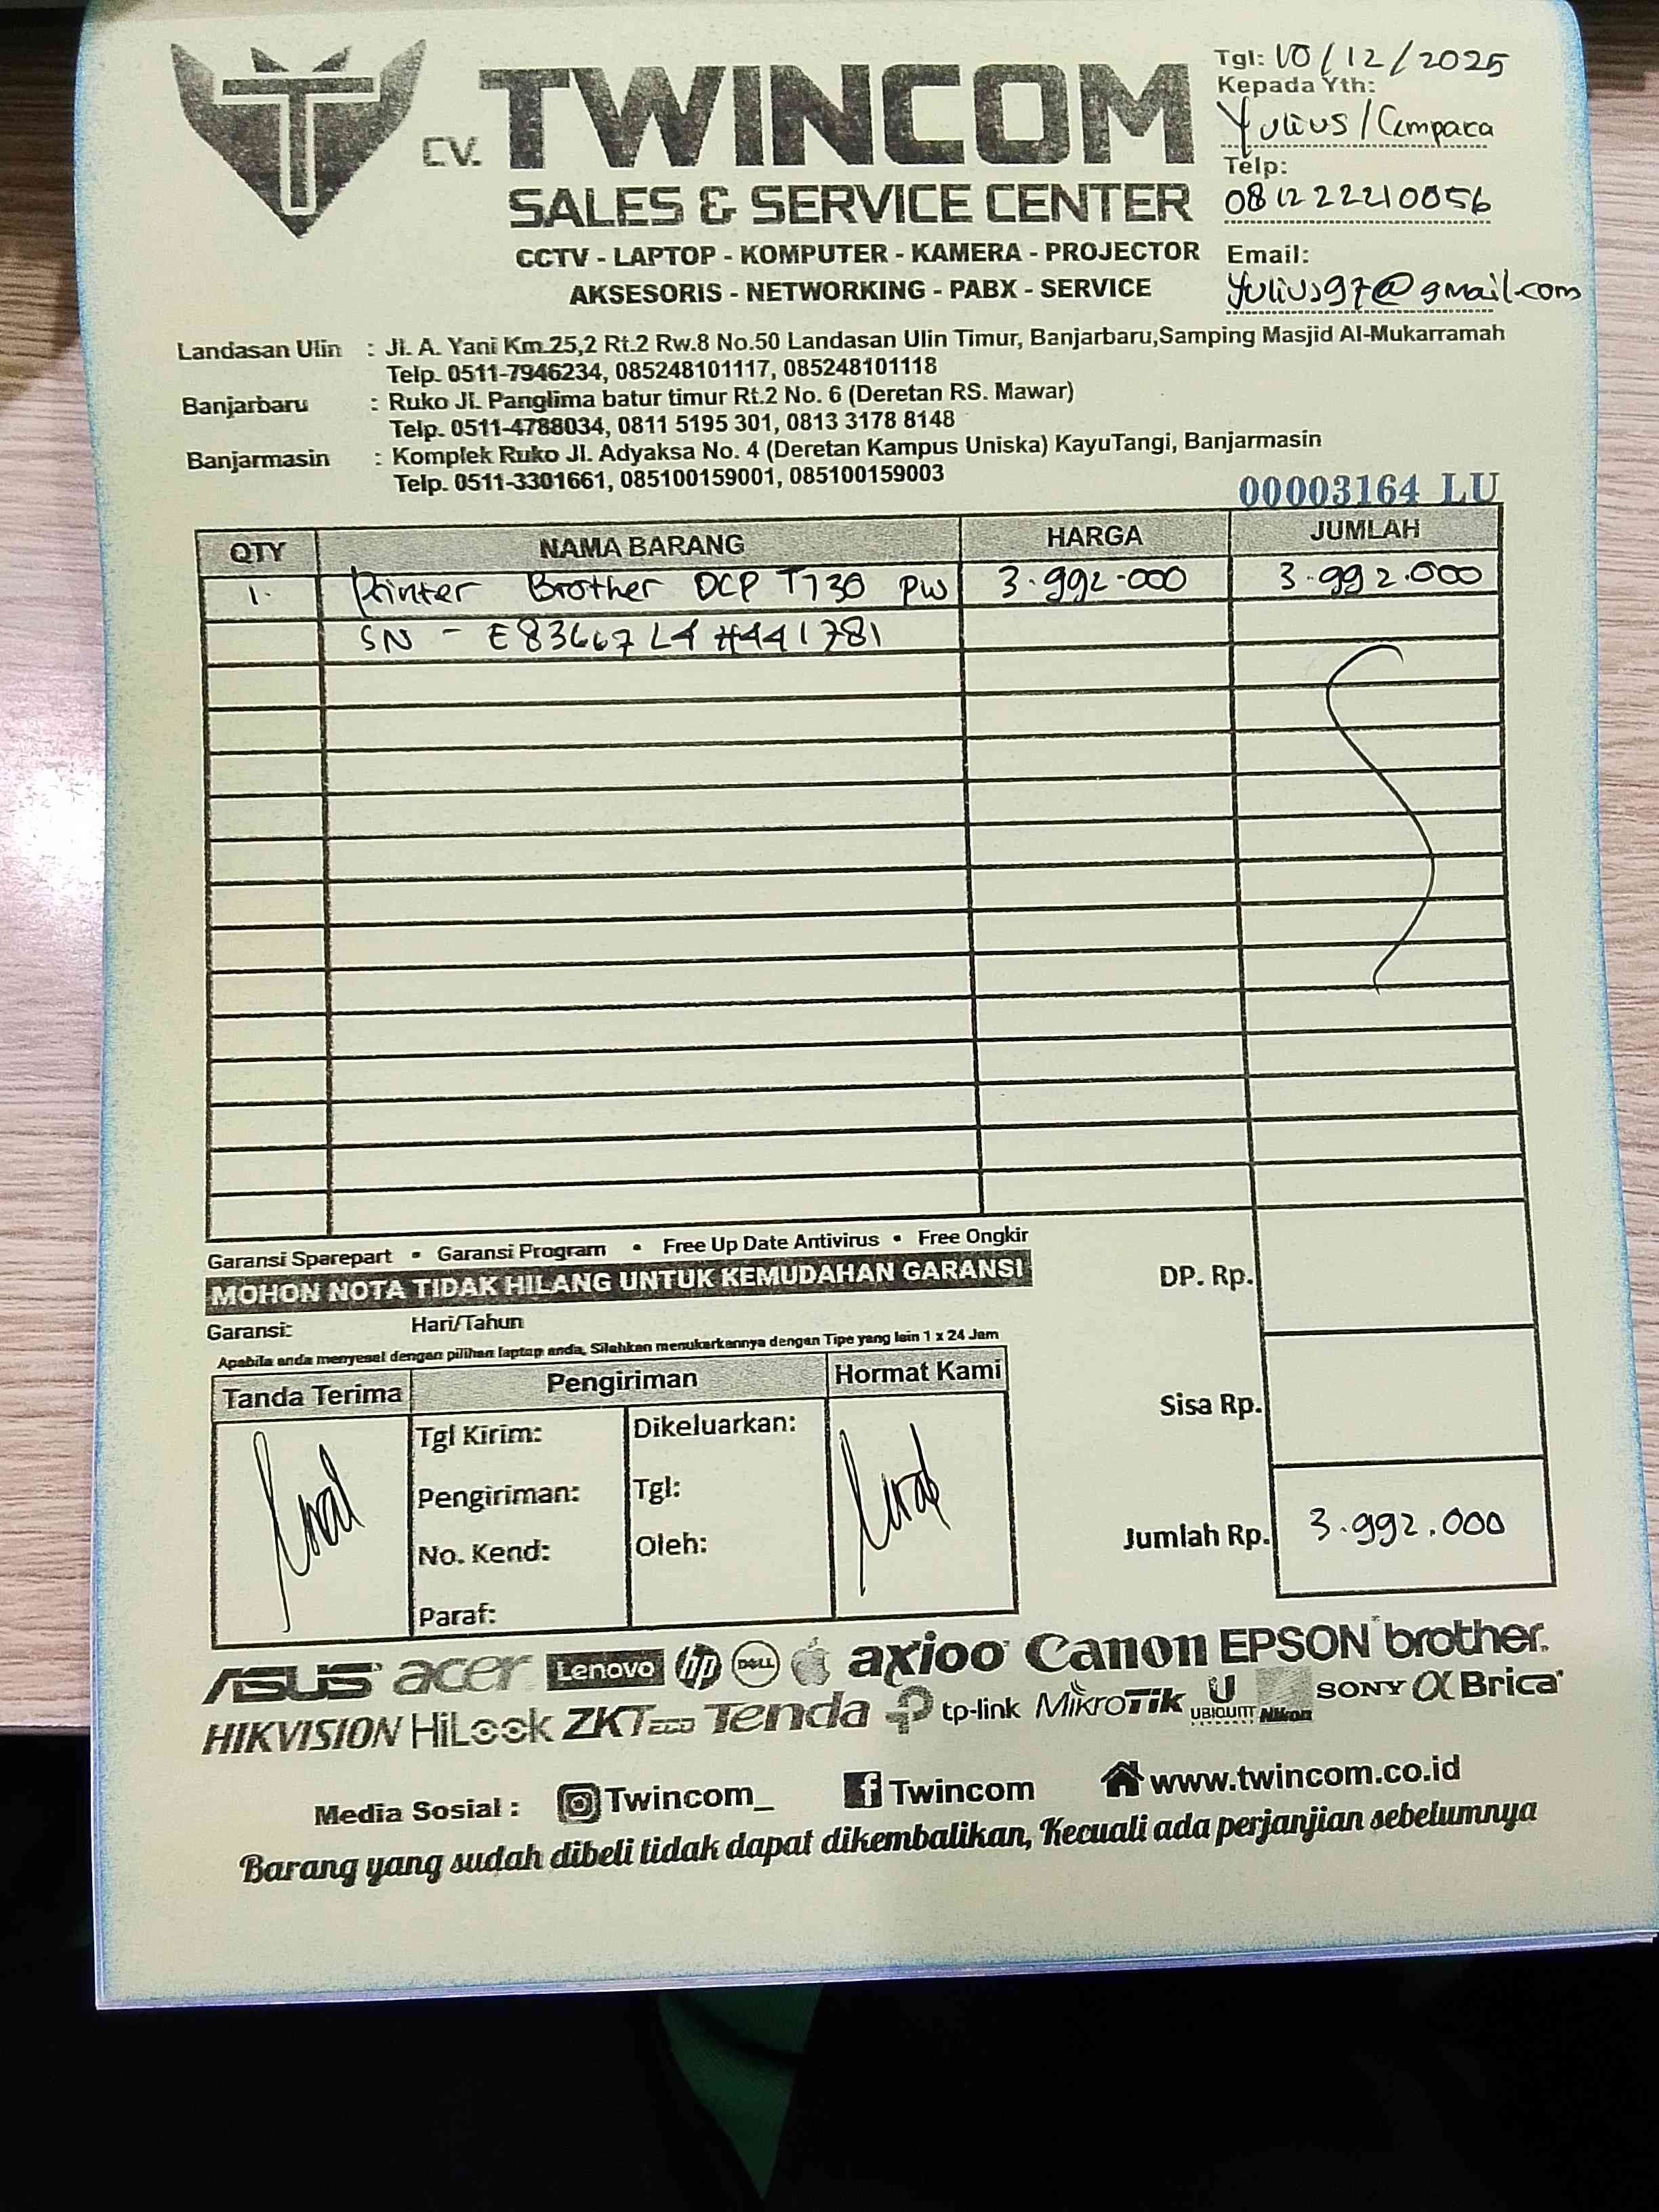 CV. TWINCOM
SALES & SERVICE CENTER
CCTV - LAPTOP - KOMPUTER - KAMERA - PROJECTOR
AKSESORIS - NETWORKING - PABX - SERVICE
Tgl: 10/12/2025
Kepada Yth:
Yulius/Cempaca
Telp:
081222210056
Email:
yulius97@gmail.com
Landasan Ulin : Jl. A. Yani Km.25,2 Rt.2 Rw.8 No.50 Landasan Ulin Timur, Banjarbaru,Samping Masjid Al-Mukarramah
Telp. 0511-7946234, 085248101117, 085248101118
Banjarbaru : Ruko Jl. Panglima batur timur Rt.2 No. 6 (Deretan RS. Mawar)
Telp. 0511-4788034, 0811 5195 301, 0813 3178 8148
Banjarmasin : Komplek Ruko Jl. Adyaksa No. 4 (Deretan Kampus Uniska) KayuTangi, Banjarmasin
Telp. 0511-3301661, 085100159001, 085100159003
00003164 LU
QTY NAMA BARANG HARGA JUMLAH
1. Printer Brother DCP T730 PW 3.992.000 3.992.000
SN - E83667L4H441781
Garansi Sparepart • Garansi Program • Free Up Date Antivirus • Free Ongkir
MOHON NOTA TIDAK HILANG UNTUK KEMUDAHAN GARANSI
Garansi: Hari/Tahun
Apabila anda menyesal dengan pilihan laptop anda, Silahkan menukarkannya dengan Tipe yang lain 1 x 24 Jam
DP. Rp.
Sisa Rp.
Jumlah Rp. 3.992.000
Tanda Terima Pengiriman Hormat Kami
Tgl Kirim: Dikeluarkan:
Pengiriman: Tgl:
No. Kend: Oleh:
Paraf:
ASUS acer Lenovo hp DELL axioo Canon EPSON brother
HIKVISION HiLook ZKTeco Tenda tp-link MikroTik U UBIQUITI Nikon SONY α Brica
Media Sosial : Twincom_ Twincom www.twincom.co.id
Barang yang sudah dibeli tidak dapat dikembalikan, Kecuali ada perjanjian sebelumnya